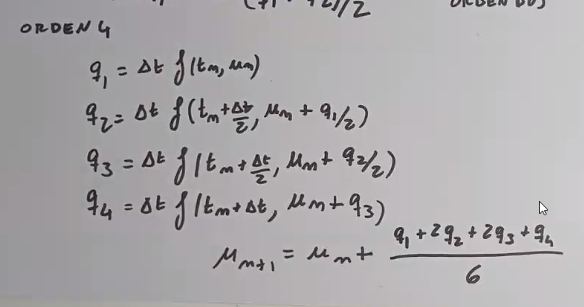 (q1 + q2)/2 ORDEN DOS
ORDEN 4
q1 = Δt f(tm, um)
q2 = Δt f(tm + Δt/2, um + q1/2)
q3 = Δt f(tm + Δt/2, um + q2/2)
q4 = Δt f(tm + Δt, um + q3)
um+1 = um + (q1 + 2q2 + 2q3 + q4)/6